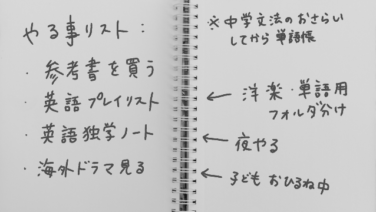 やる事リスト:
・参考書を買う
・英語プレイリスト
・英語独学ノート
・海外ドラマ見る
※中学文法のおさらい
してから単語帳
← 洋楽・単語用
フォルダ分け
← 夜やる
← 子どもおひるね中